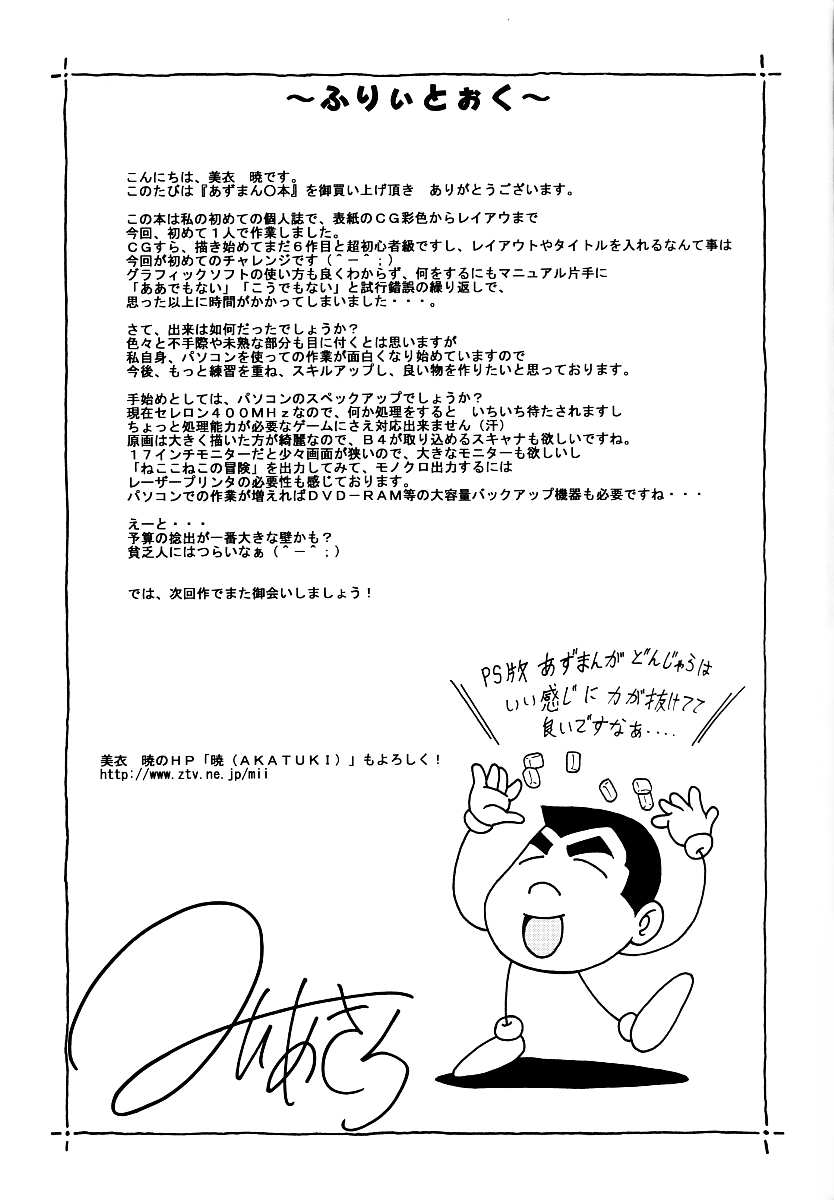 ～ふりぃとぉく～
こんにちは、美衣　暁です。
このたびは『あずまん〇本』を御買い上げ頂き　ありがとうございます。
この本は私の初めての個人誌で、表紙のＣＧ彩色からレイアウまで
今回、初めて１人で作業しました。
ＣＧすら、描き始めてまだ６作目と超初心者級ですし、レイアウトやタイトルを入れるなんて事は
今回が初めてのチャレンジです（＾－＾；）
グラフィックソフトの使い方も良くわからず、何をするにもマニュアル片手に
「ああでもない」「こうでもない」と試行錯誤の繰り返しで、
思った以上に時間がかかってしまいました・・・。
さて、出来は如何だったでしょうか？
色々と不手際や未熟な部分も目に付くとは思いますが
私自身、パソコンを使っての作業が面白くなり始めていますので
今後、もっと練習を重ね、スキルアップし、良い物を作りたいと思っております。
手始めとしては、パソコンのスペックアップでしょうか？
現在セレロン４００ＭＨｚなので、何か処理をすると　いちいち待たされますし
ちょっと処理能力が必要なゲームにさえ対応出来ません（汗）
原画は大きく描いた方が綺麗なので、Ｂ４が取り込めるスキャナも欲しいですね。
１７インチモニターだと少々画面が狭いので、大きなモニターも欲しいし
「ねここねこの冒険」を出力してみて、モノクロ出力するには
レーザープリンタの必要性も感じております。
パソコンでの作業が増えればＤＶＤ－ＲＡＭ等の大容量バックアップ機器も必要ですね・・・
えーと・・・
予算の捻出が一番大きな壁かも？
貧乏人にはつらいなぁ（＾－＾；）
では、次回作でまた御会いしましょう！
PS版 あずまんが どんじゃらは
いい感じに 力が抜けてて
良いですなぁ....
美衣　暁のＨＰ「暁（ＡＫＡＴＵＫＩ）」もよろしく！
http://www.ztv.ne.jp/mii